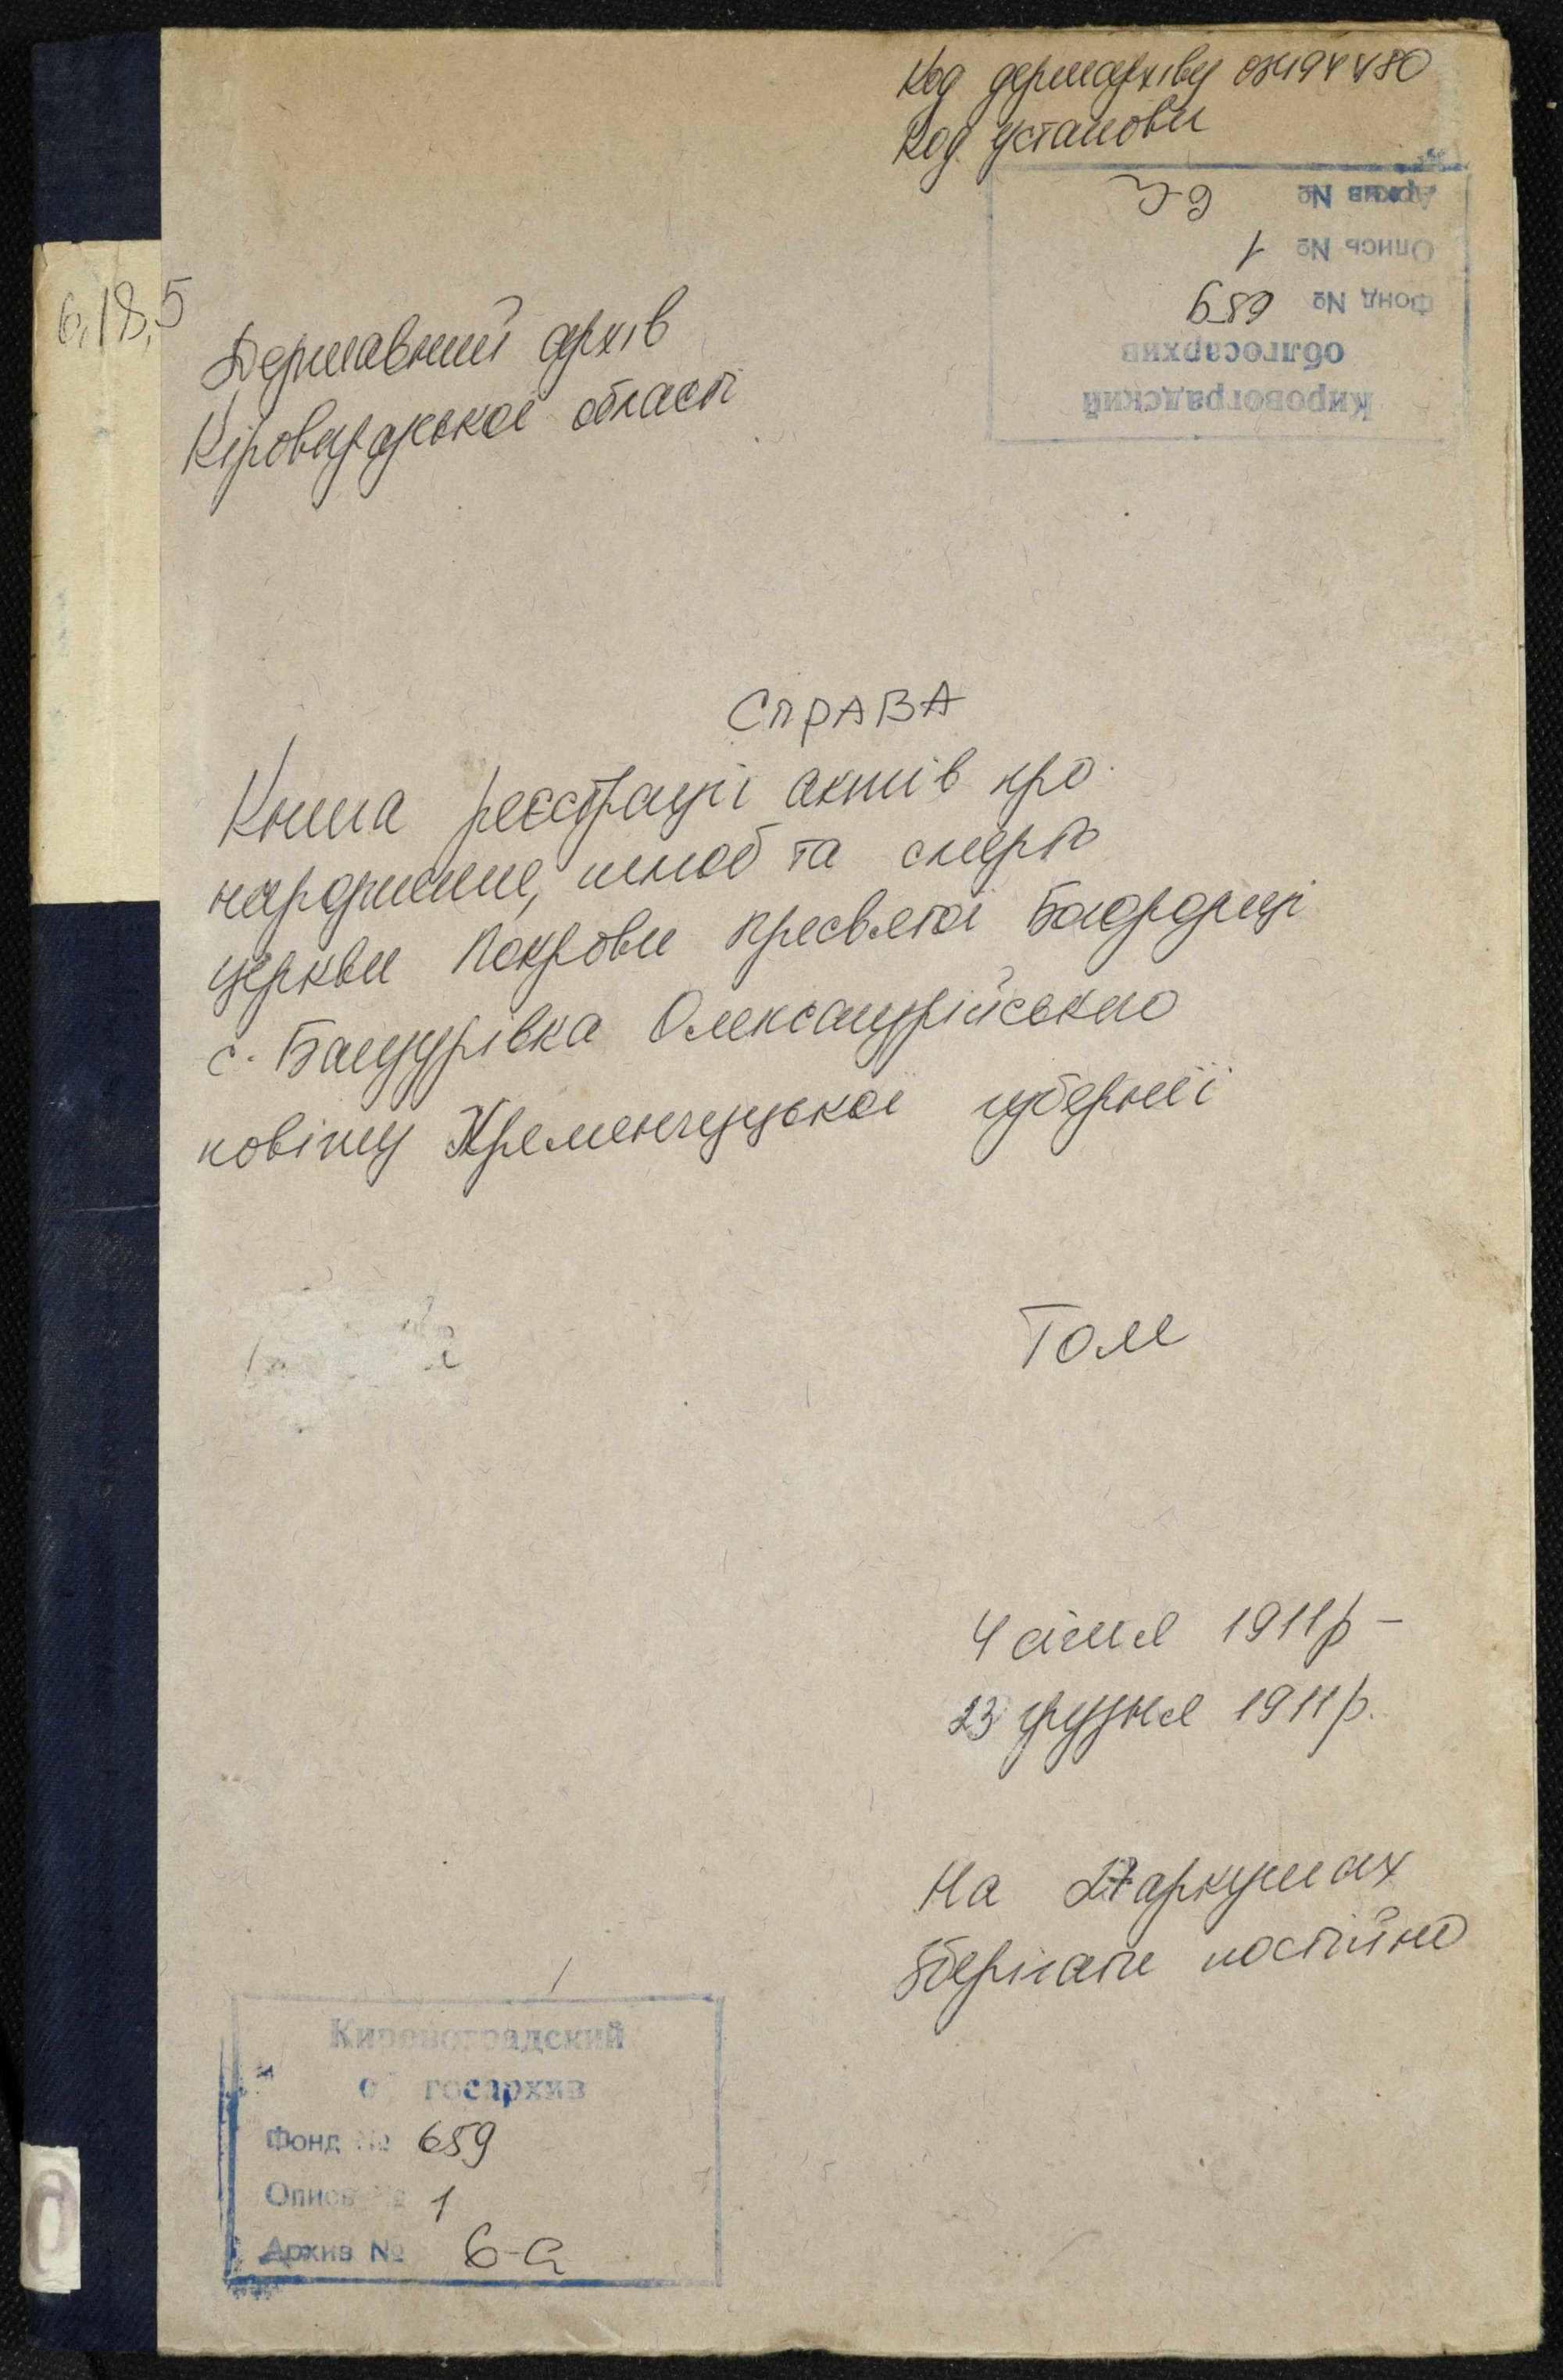 Код держархіву 03494480
Код установи
Кировоградский
облгосархив
Фонд № 659
Опись № 1
Архив № 6-а
6,18,5
Державний архів
Кіровоградської області
СПРАВА
Книга реєстрації актів про
народження, шлюб та смерть
церкви Покрови Пресвятої Богородиці
с. Бандурівка Олександрійського
повіту Кременчуцької губернії
Том
4 січня 1911р –
23 грудня 1911р.
На 27 аркушах
Зберігати постійно
Кировоградский
облгосархив
Фонд № 659
Опись № 1
Архив № 6-а